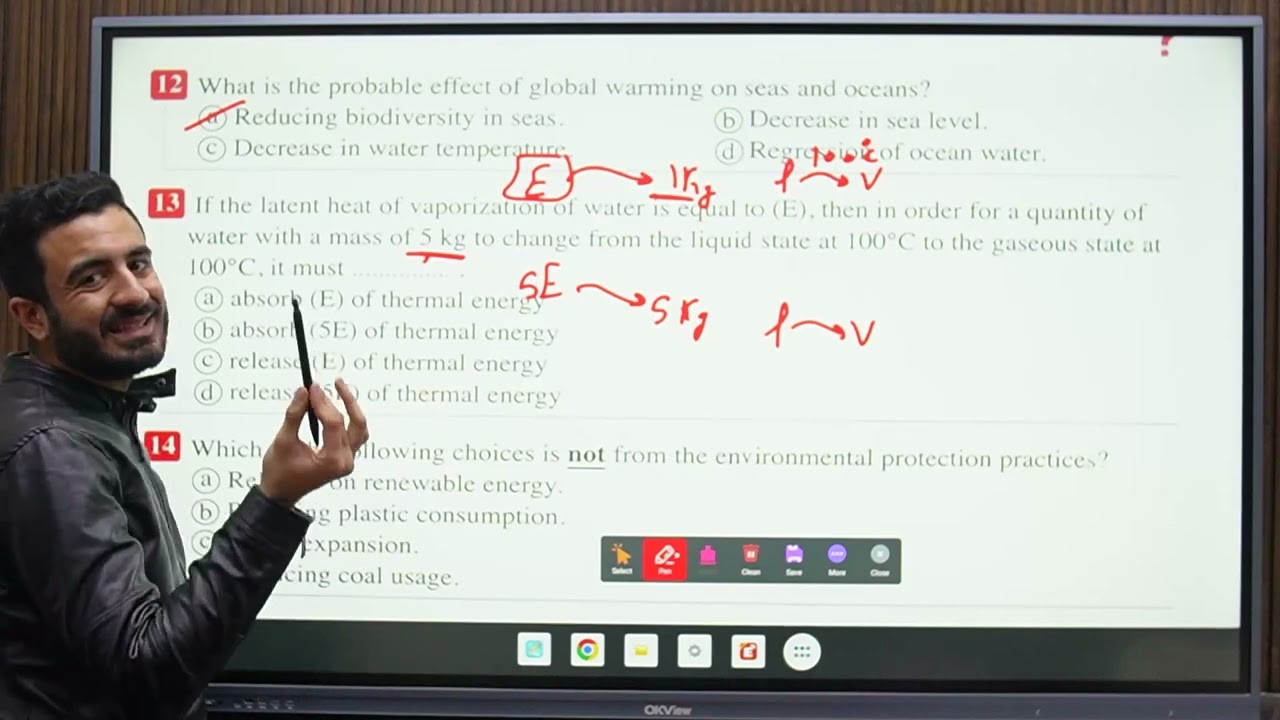 ?
12 What is the probable effect of global warming on seas and oceans?
a Reducing biodiversity in seas.
b Decrease in sea level.
c Decrease in water temperature
d Regression of ocean water.
E 1Kg l V
13 If the latent heat of vaporization of water is equal to (E), then in order for a quantity of
water with a mass of 5 kg to change from the liquid state at 100°C to the gaseous state at
100°C, it must ............... .
5E 5 Kg l V
a absorb (E) of thermal energy
b absorb (5E) of thermal energy
c release (E) of thermal energy
d of thermal energy
14 Which following choices is not from the environmental protection practices?
a on renewable energy.
b plastic consumption.
c expansion.
coal usage.
Select Pen Clean Save More Close
OKView